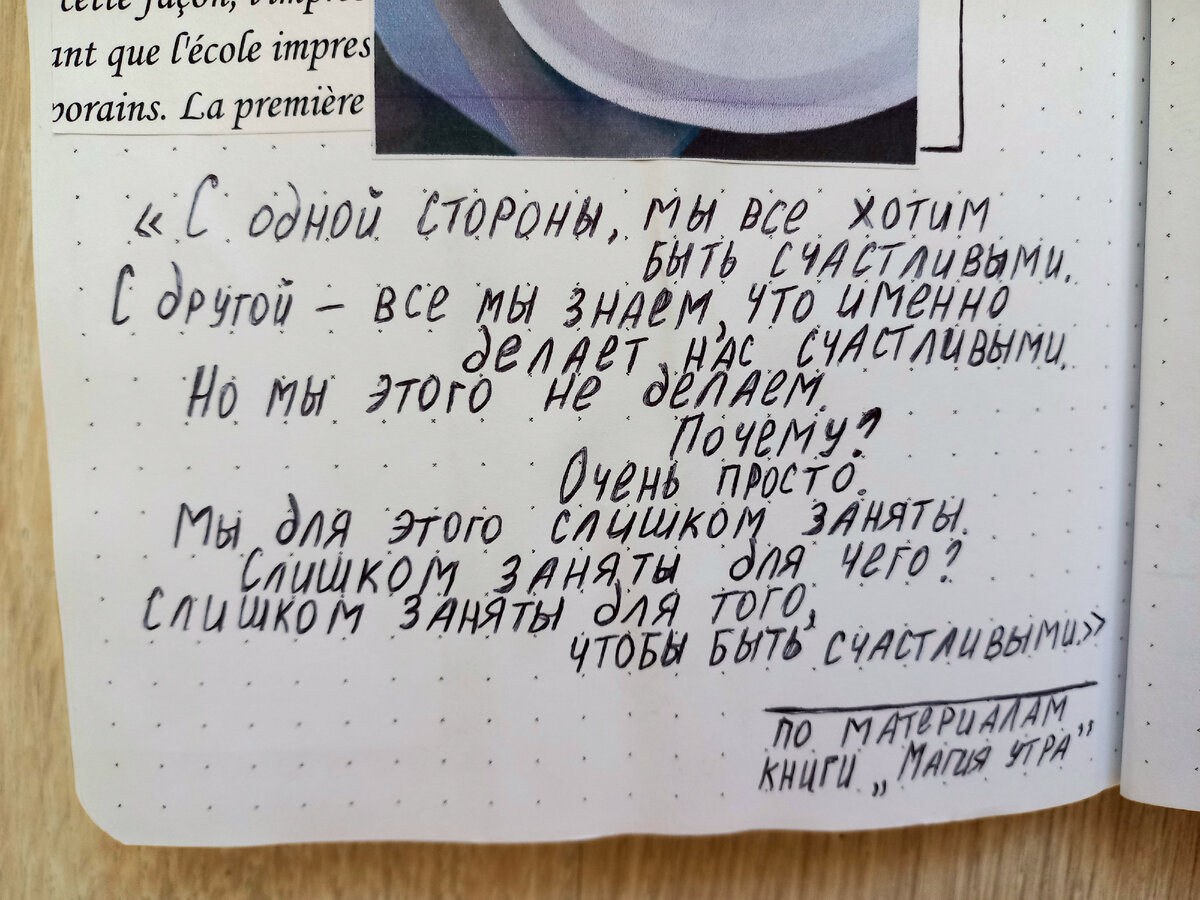 cette façon, l'impres
ant que l'école impres
porains. La première
«С одной стороны, мы все хотим
быть счастливыми.
С другой – все мы знаем, что именно
делает нас счастливыми.
Но мы этого не делаем.
Почему?
Очень просто.
Мы для этого слишком заняты.
Слишком заняты для чего?
Слишком заняты для того,
чтобы быть счастливыми.»
по материалам
книги „Магия утра”